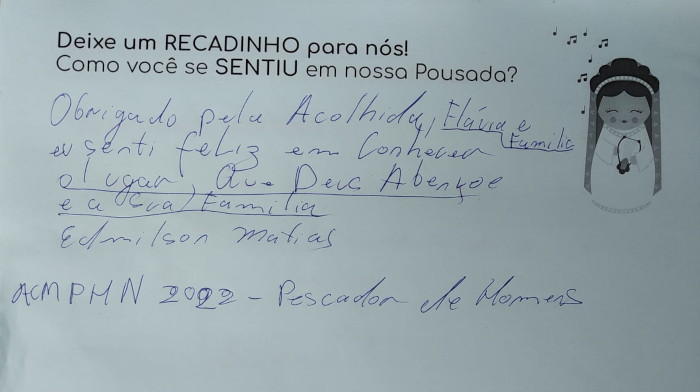 Deixe um RECADINHO para nós!
Como você se SENTIU em nossa Pousada?
Obrigado pela Acolhida, Flávia e Familia
eu senti feliz em Conhecer
o lugar, Que Deus Abençoe
e a sua Familia
Edmilson Matias
ACMPHN 2022 - Pescador de Homens